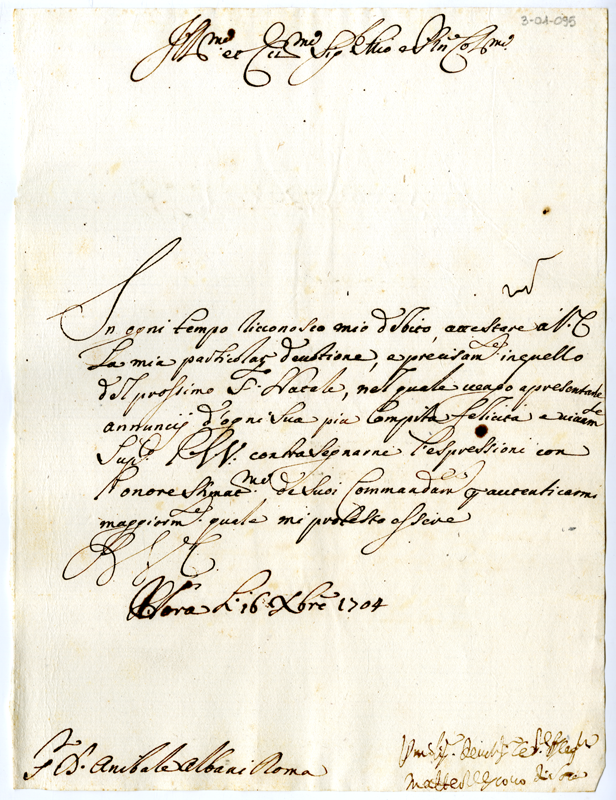 3-04-095
Ill.mo et Ecc.mo Sig.re e P.ne Col.mo
In ogni tempo riconosco mio debito, attestare a V. E
la mia particolar deuotione, e precisam.te in quello
del prossimo S. Natale, nel quale uengo a presentarle
annuncij d'ogni sua piu compita felicita e uiuam.te
Sup.co V. E. contrasegnarne l'espressioni con
l'honore stimat.mo de suoi Commandam.ti p autenticarmi
maggiorm.te quale mi protesto essere
D. V. E.
li 16 Xbre 1704
S.r D. Anibale Albani Roma